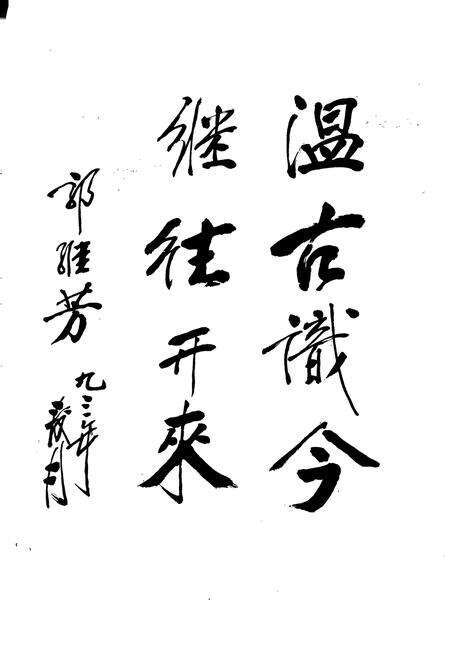 温古識今
继往开來
郭维芳
九三年